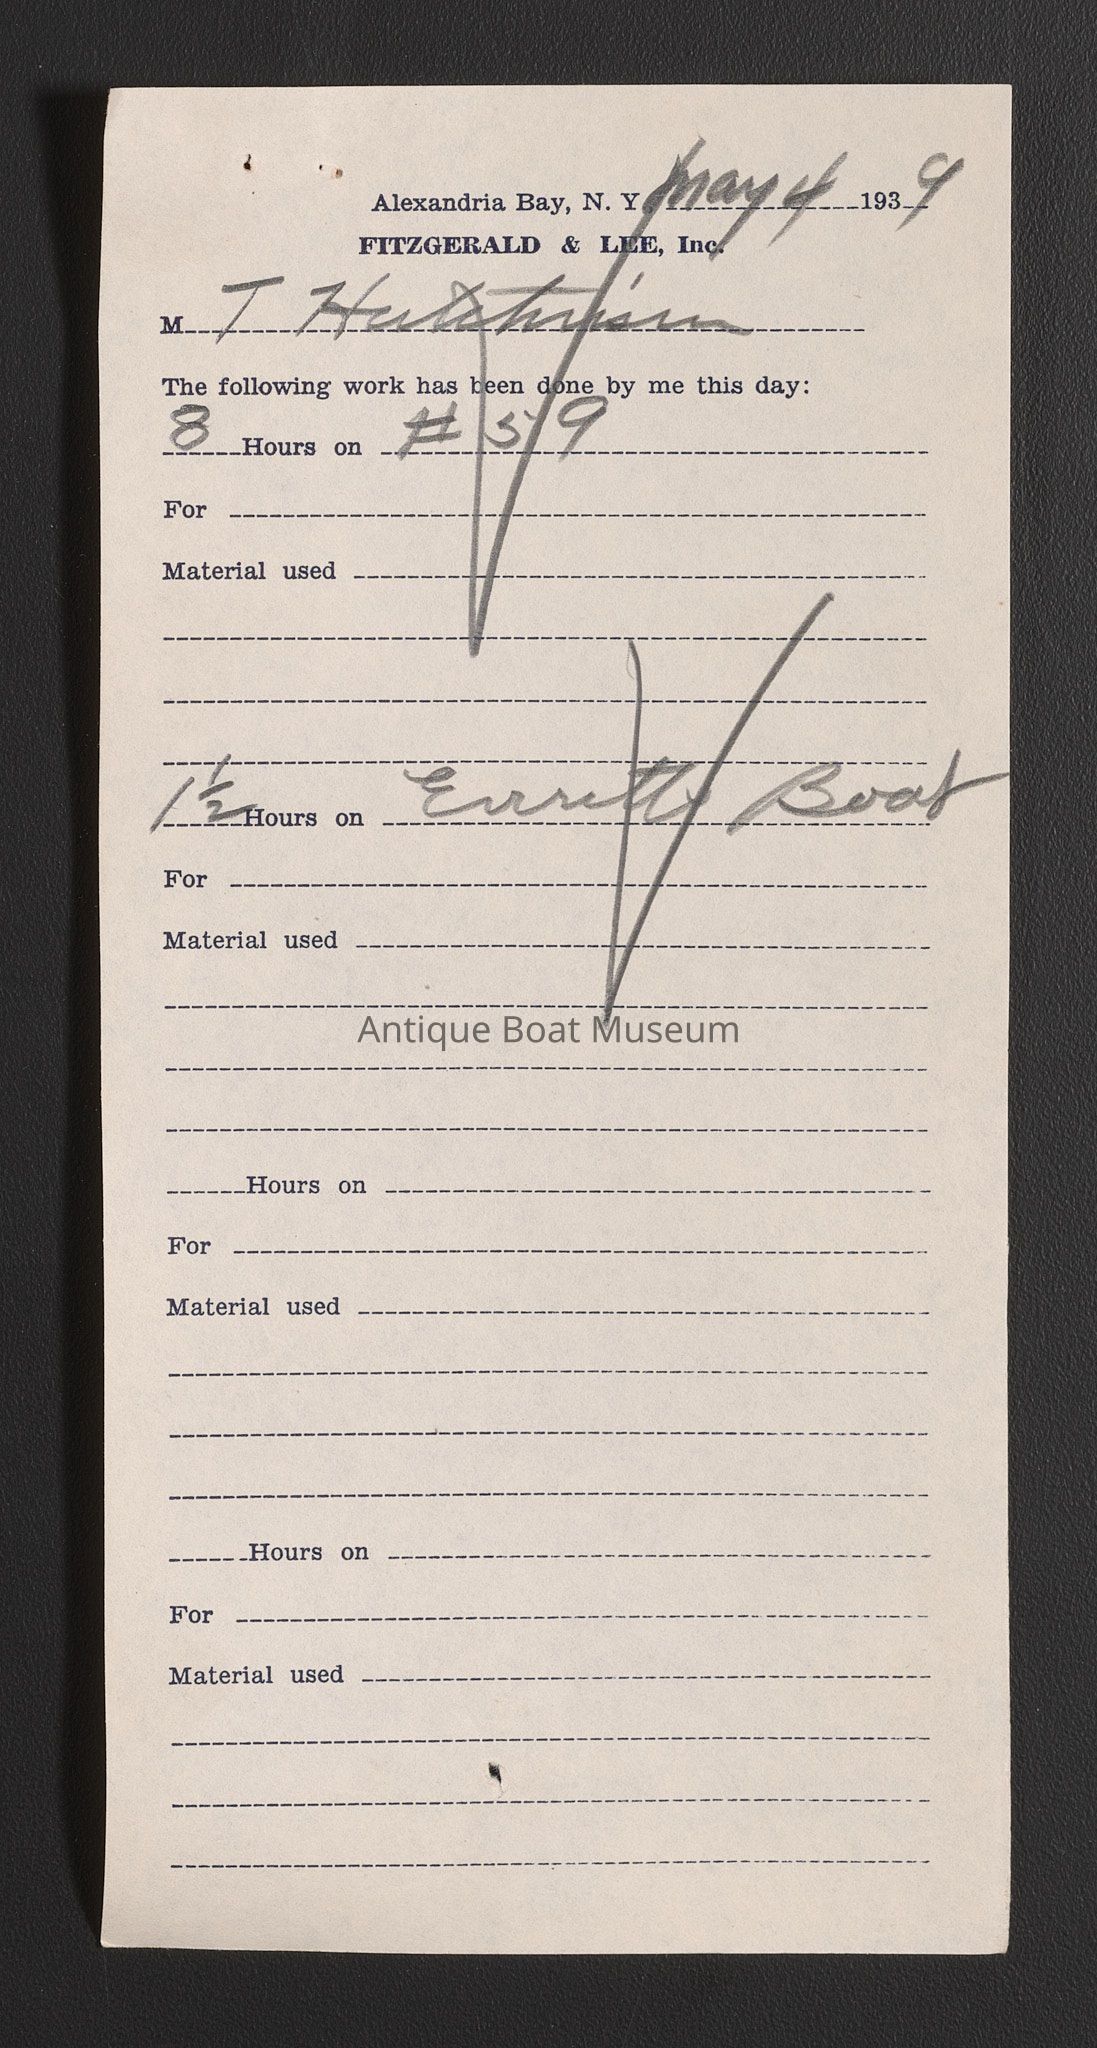 Alexandria Bay, N. Y. May 4 1939
FITZGERALD & LEE, Inc.
M T Hutchinson
The following work has been done by me this day:
8 Hours on # 59
For
Material used
1 1/2 Hours on Erretts Boat
For
Material used
Antique Boat Museum
Hours on
For
Material used
Hours on
For
Material used